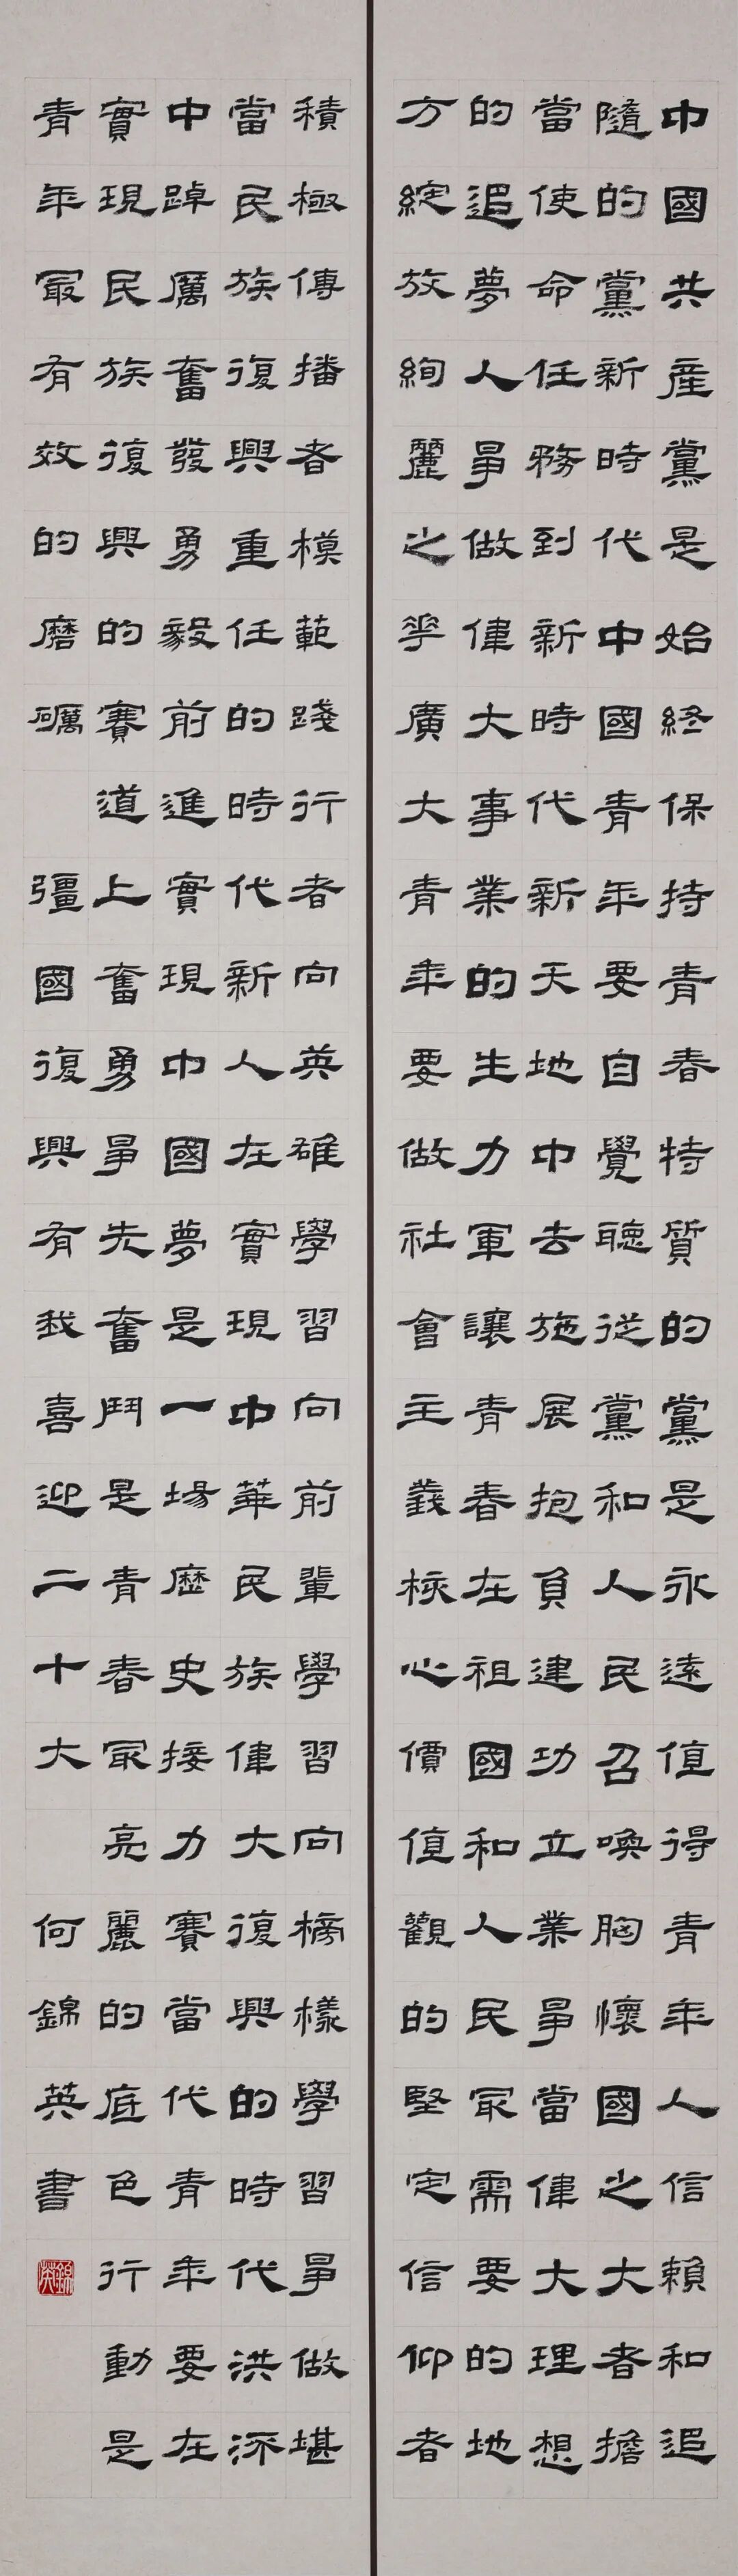 中國共產黨是始終保持青春特質的黨是永遠值得青年人信賴和追
隨的黨新時代中國青年要自覺聽從黨和人民召喚胸懷國之大者擔
當使命任務到新時代新天地中去施展抱負建功立業爭當偉大理想
的追夢人爭做偉大事業的生力軍讓青春在祖國和人民最需要的地
方綻放絢麗之華廣大青年要做社會主義核心價值觀的堅定信仰者
積極傳播者模範踐行者向英雄學習向前輩學習向榜樣學習爭做堪
當民族復興重任的時代新人在實現中華民族偉大復興的時代洪流
中踔厲奮發勇毅前進實現中國夢是一場歷史接力賽當代青年要在
實現民族復興的賽道上奮勇爭先奮鬥是青春最亮麗的底色行動是
青年最有效的磨礪 彊國復興有我喜迎二十大 何錦英書
錦英